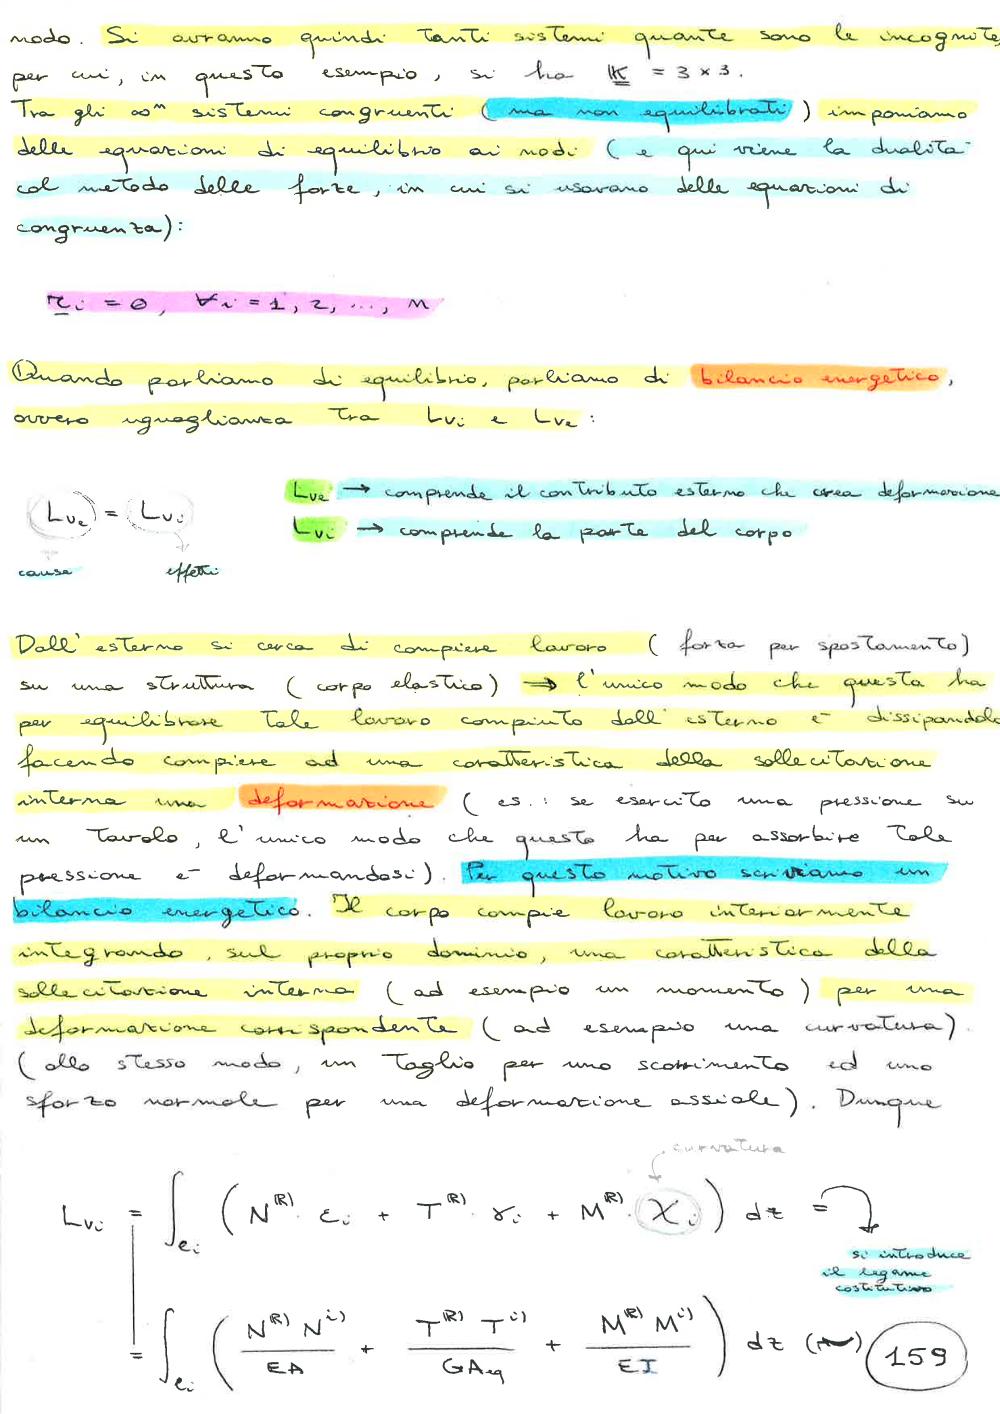 modo. Si avranno quindi tanti sistemi quante sono le incognite,
per cui, in questo esempio, si ha K = 3 × 3.
Tra gli ∞ⁿ sistemi congruenti (ma non equilibrati) imponiamo
delle equazioni di equilibrio ai nodi (e qui viene la dualità
col metodo delle forze, in cui si usavano delle equazioni di
congruenza):
r_i = 0, ∀i = 1, 2, ..., n
Quando parliamo di equilibrio, parliamo di bilancio energetico,
ovvero uguaglianza tra Lvi e Lve:
Lve → comprende il contributo esterno che crea deformazione
Lve = Lvi
Lvi → comprende la parte del corpo
cause effetti
Dall'esterno si cerca di compiere lavoro (forza per spostamento)
su una struttura (corpo elastico) → l'unico modo che questa ha
per equilibrare tale lavoro compiuto dall'esterno è dissipandolo
facendo compiere ad una caratteristica della sollecitazione
interna una deformazione (es.: se esercito una pressione su
un tavolo, l'unico modo che questo ha per assorbire tale
pressione è deformandosi). Per questo motivo scriviamo un
bilancio energetico. Il corpo compie lavoro interiormente
integrando, sul proprio dominio, una caratteristica della
sollecitazione interna (ad esempio un momento) per una
deformazione corrispondente (ad esempio una curvatura).
(allo stesso modo, un taglio per uno scorrimento ed uno
sforzo normale per una deformazione assiale). Dunque
curvatura
Lvi = ∫_ei (N^(R) · ε_i + T^(R) · γ_i + M^(R) · χ_i) dz =
si introduce
il legame
costitutivo
= ∫_ei (N^(R) N^i) / EA + T^(R) T^i) / GAeq + M^(R) M^i) / EI) dz (~) 159